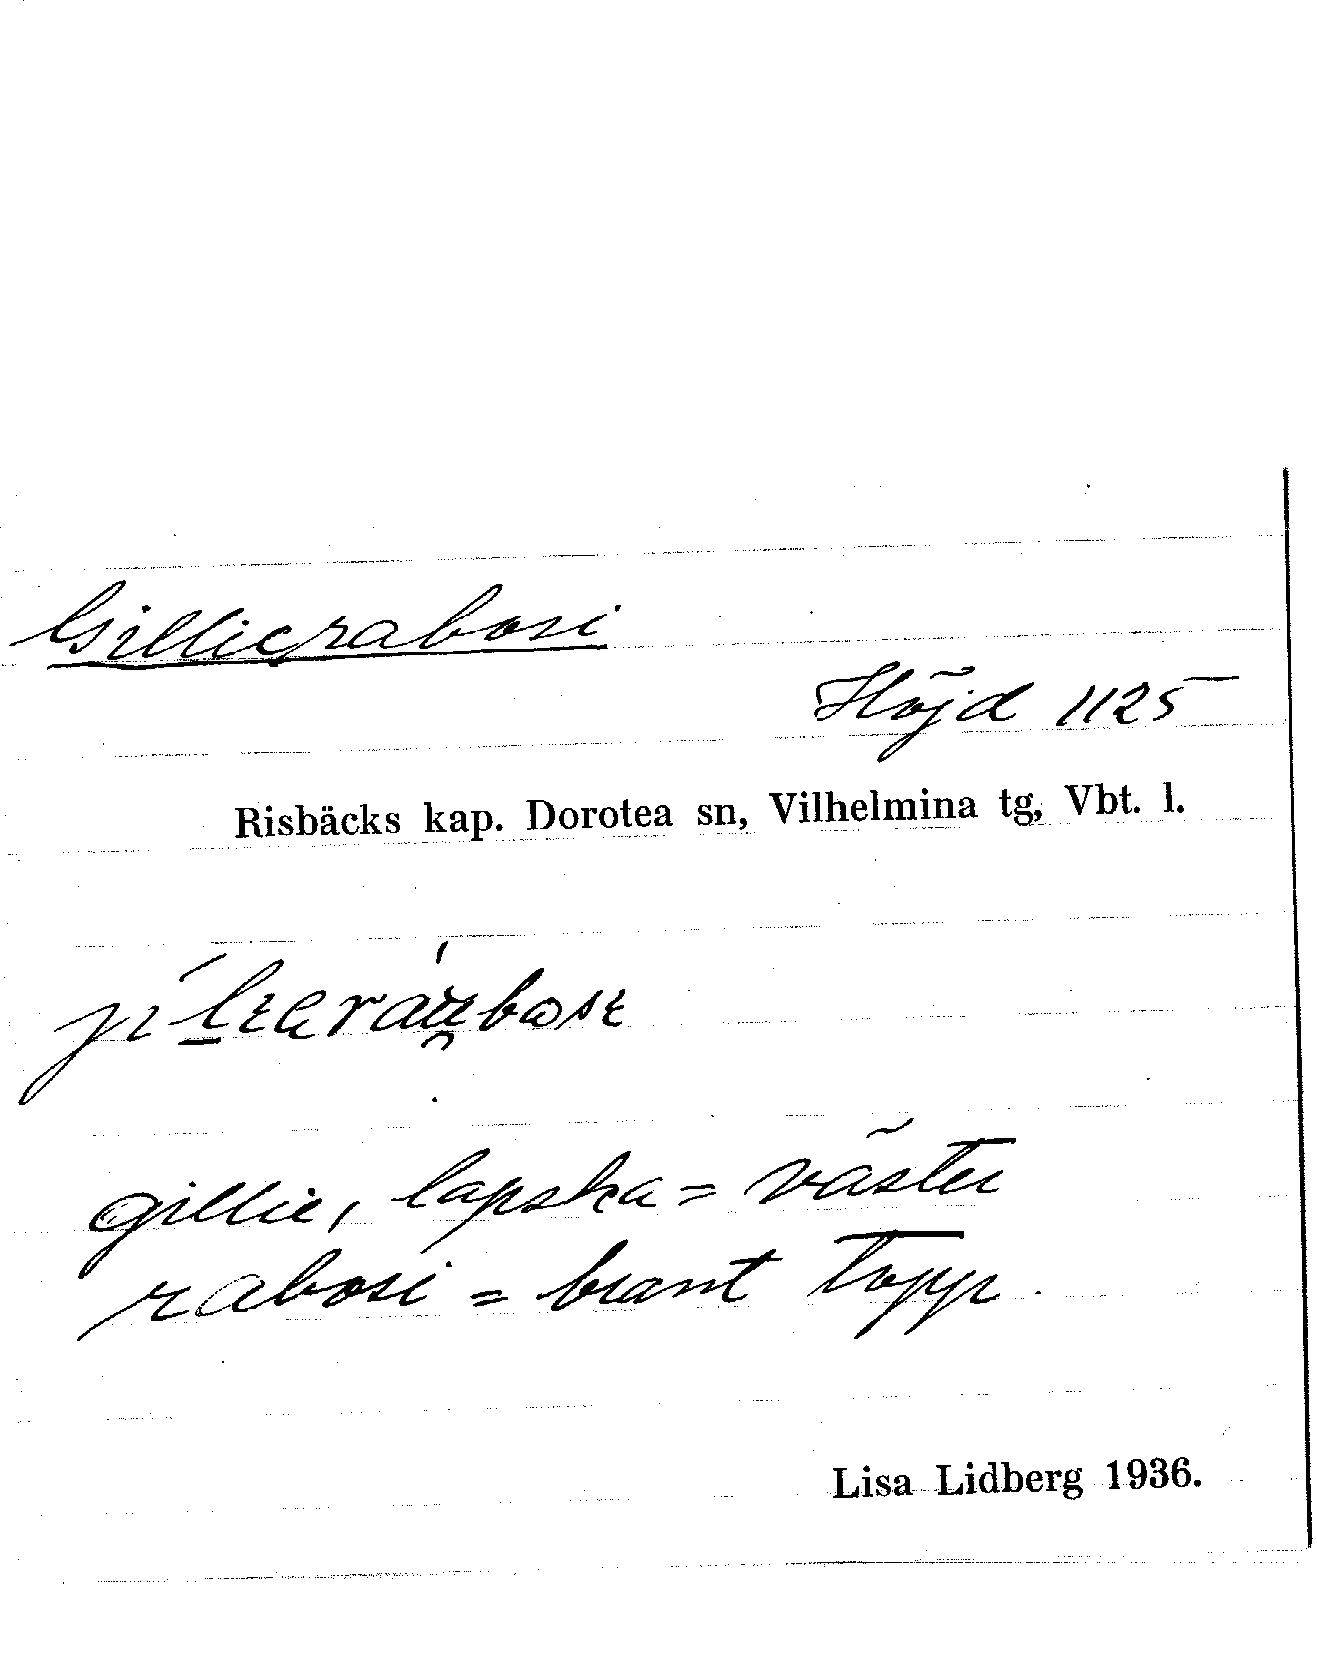 Gillierabosi
Höjd 1125
Risbäcks kap. Dorotea sn, Vilhelmina tg, Vbt. l.
gillie, lapska = väster
rabosi = brant topp.
Lisa Lidberg 1936.